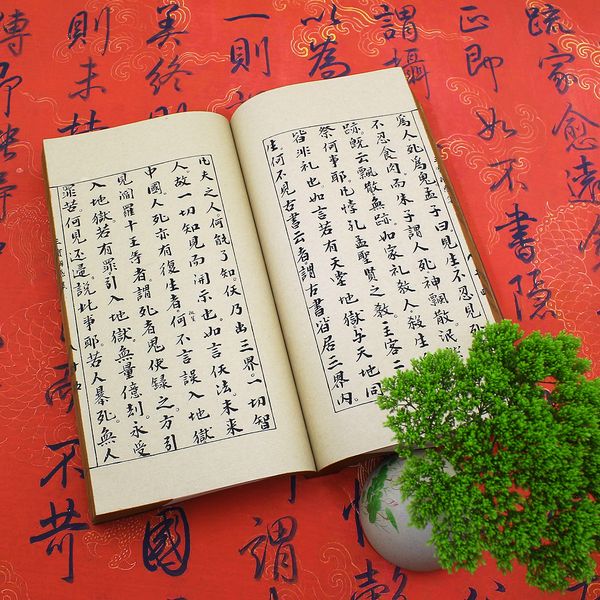 疏家愈遠
正即如不書隱
謂攝
以為
一則
美終則
則未
為人死為鬼孟子曰見生不忍見
不忍食肉而朱子謂人死神飄散泯
跡既云飄散無跡如家礼殺人殺生
祭何事耶比悖孔孟聖賢之教主客二
皆非礼也如言若有天堂地獄与天地同
生何不見古書云者謂古書皆居三界内。
比夫之人何能了知仸乃出三界一切智
人故一切知見而開示也如言仸法未來
中國人死亦有復生者何不言誤入地獄
見閻羅十王等者謂死者鬼使錄之方引
入地獄若有罪引入地獄無量億刼永受
罪苦何見還說此事耶若人暴死無人
謂
國
不苛